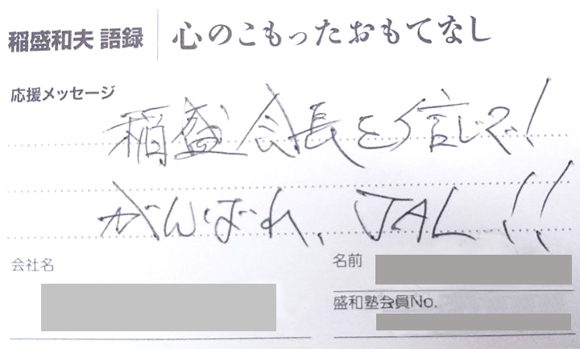 稲盛和夫 語録 心のこもったおもてなし
応援メッセージ
稲盛会長を信じて!
がんばれ、JAL!!
会社名
名前
盛和塾会員No.